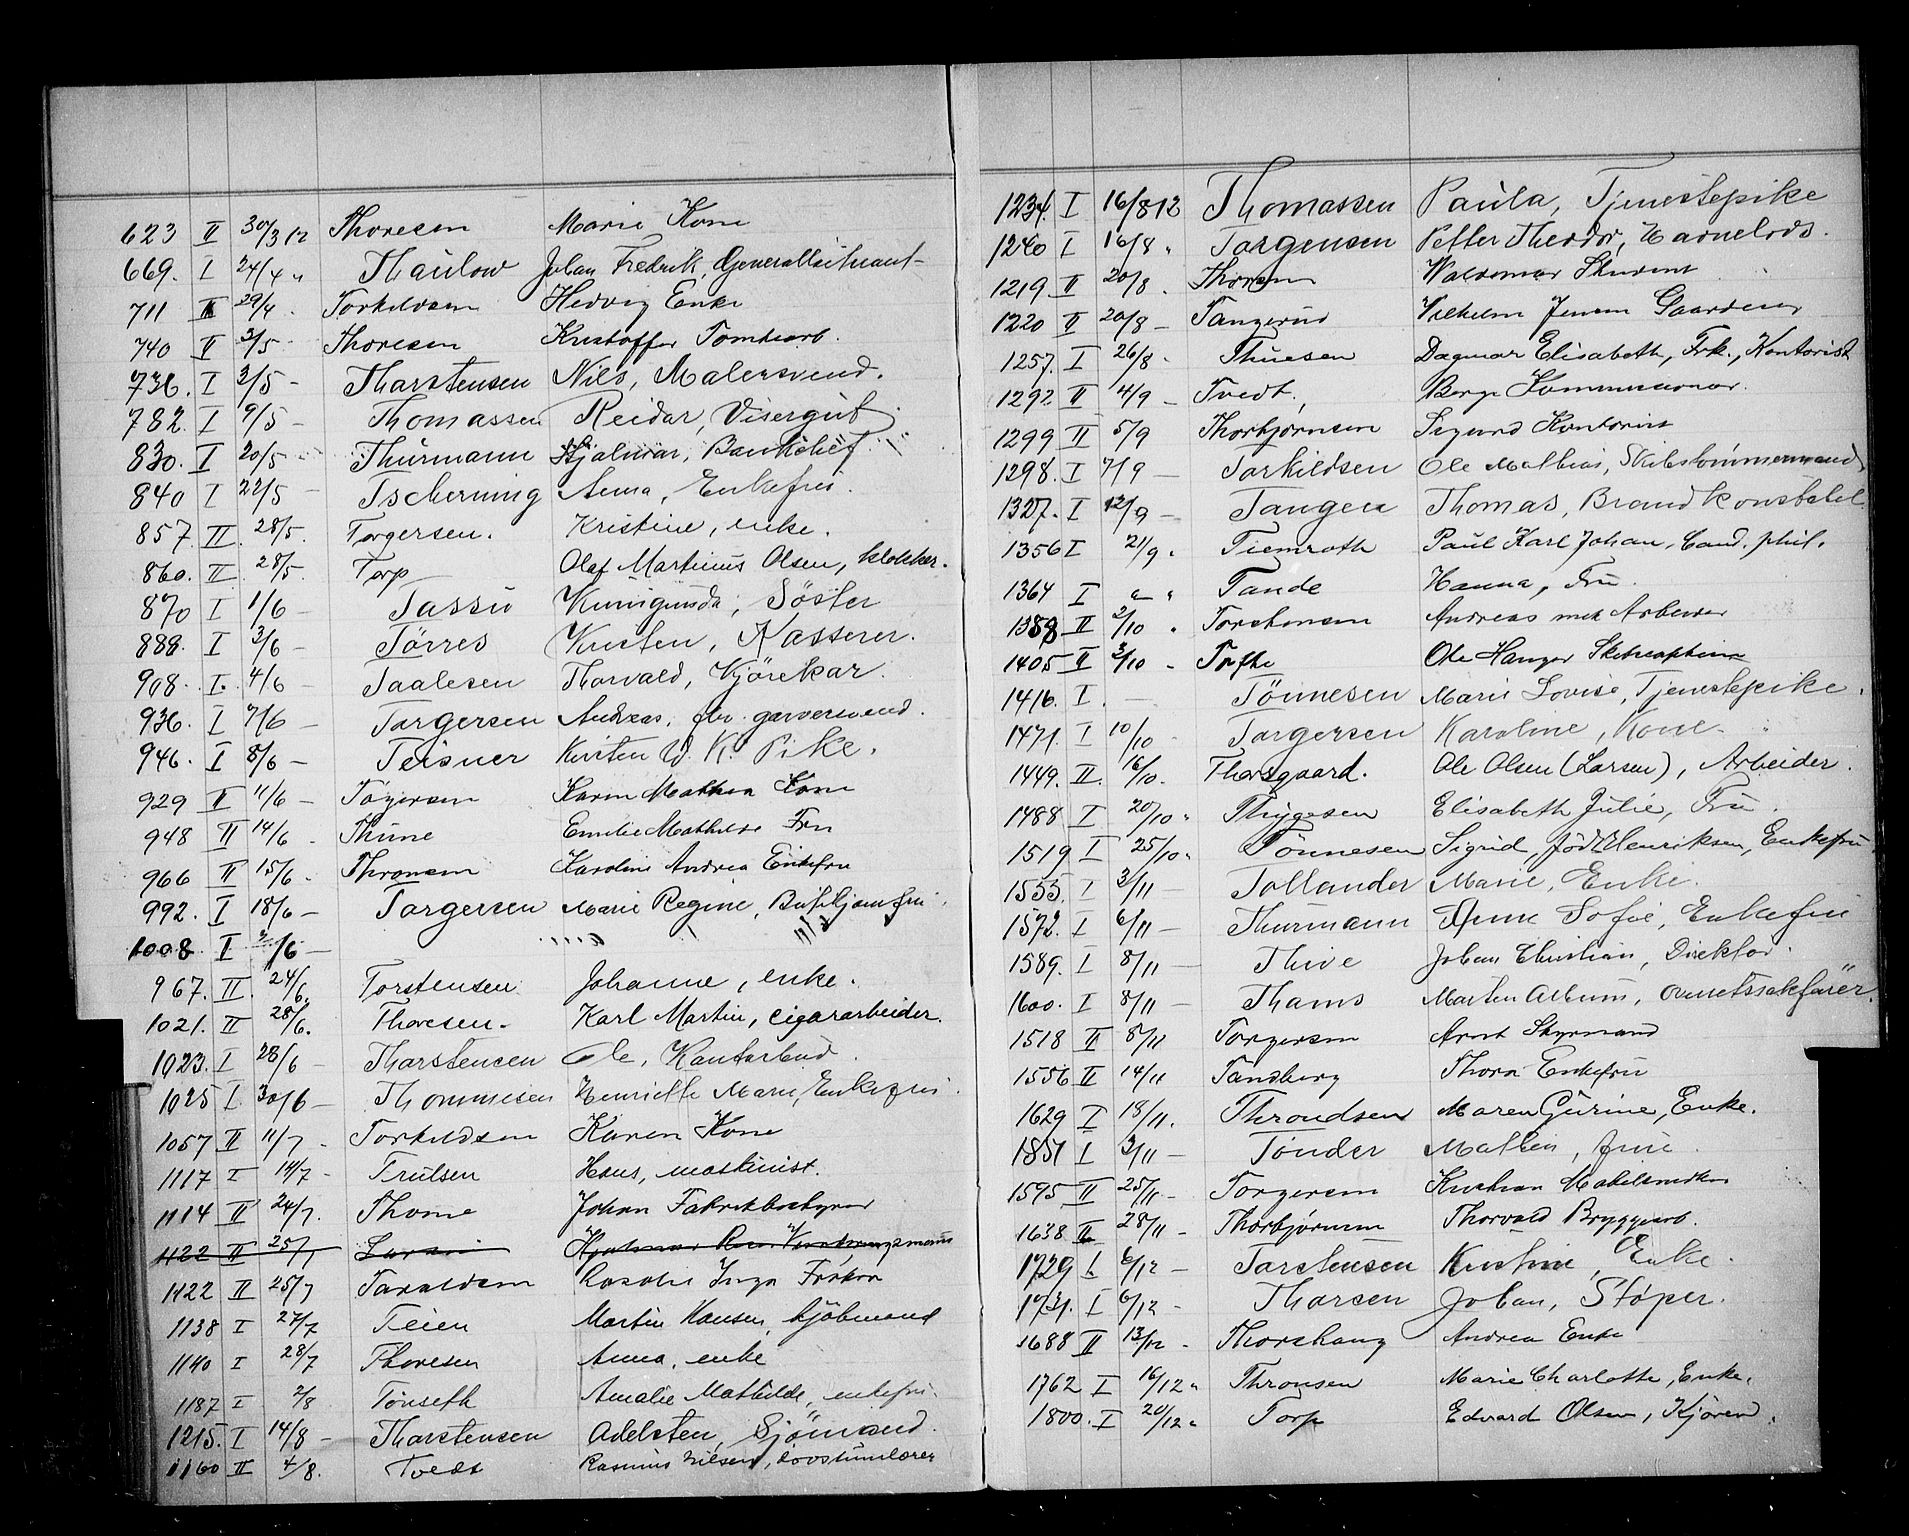 623 II 30/3 12 Thoresen Marie Kone
669. I 24/4 " Thaulow Johan Fredrik, Generallöitnant
711 II 29/4 Torkildsen Hedvig Enke
740 II 3/5 Thoresen Kristoffer Tomtearb.
736. I 3/5 - Tharstensen Nils, Malersvend.
782. I 9/5 - Thomassen Reidar, Visergut
830. I 20/5 - Thurmann Hjalmar, Bankchef
840 I 22/5 - Tscherning Anna, Enkefru.
857. II. 28/5. Torgersen. Kristine, enke.
860. II 28/5. Torp Olaf Martinus Olsen, klokker.
870 I 1/6 - Tassu Kunigunda, Söster
888. I 3/6 - Törres Kristen, Kasserer.
908. I. 4/6 - Taalesen Thorvald, Kjörekar.
936. I 7/6 - Torgersen Andreas, fhv. garversvend.
946. I 8/6 - Teisner Kirsten W. K. Pike.
929 II 11/6 - Törgersen Karen Mathea Kone
948 II 14/6 - Thune Emilie Mathilde Fru
966 II 15/6 - Thronsen Karoline Andrea Enkefru
992. I 18/6 - Torgersen Marie Regine, Bufetjomfru.
1008 I /6 -
967. II. 24/6. Torstensen Johanne, enke.
1021. II 28/6. Thoresen. Karl Martin, cigararbeider.
1023. I 28/6 - Tharstensen Ole, Kontorbud.
1025 I 30/6 - Thommesen Henriette Marie, Enkefru.
1057 II 11/7 - Torkildsen Karen Kone
1117 I 14/7 - Trulsen Hans, maskinist.
1114 II 24/7. Thome Johan Fabrikbestyrer
1122 II 25/7 Larsen Hjalmar
1122 II 25/7 Taraldsen Rosalie Inga Frøken
1138 I 27/7 Teien Martin Hansen, kjöbmand
1140 I 28/7 Thoresen Anna, enke
1187 I 2/8 Tönseth Amalie Mathilde, enkefru.
1215. I 14/8 - Tharstensen Adelsten, Sjömand.
1160 II 4/8. Tvedt Rasmus Nilsen, døvstumlærer
1234. I 16/8 12 Thomassen Paula, Tjenestepike
1240 I 16/8 " Torgensen Petter Theodor,
1219 II 20/8 . Thoresen Waldemar Student
1220 II 20/8 - Tangerud Vilhelm Jensen Gaardeier
1257. I 26/8 - Thuesen Dagmar Elisabeth, Frk., Kontorist
1292 II 4/9 - Tvedt, Børge Kommissionær.
1299 II 5/9 Thorbjørnsen Sigurd Kontorist
1298. I 7/9 - Torkildsen Ole Mathias, Skibstömmermand
1327. I 12/9 - Tangen Thomas, Brandkonstabel
1356 I 21/9 " Tiemroth Paul Karl Johan, Cand. phil.
1364 I " " Tande Hanna, Fru.
1388 II 2/10 " Torstensen Andreas Arbeider
1405 II 3/10 - Tofte Ole Hanger Skibscaptein
1416. I. - Tönnesen Marie Lovise, Tjenestepike.
1471. I 10/10 - Torgersen Karoline, Kone
1449. II. 16/10. Thorsgaard. Ole Olsen (Larsen), Arbeider.
1488 I 20/10 " Thygesen Elisabeth Julie, Fru.
1519 I 25/10 " Tönnesen Sigrid, född Henriksen, Enkefru
1555. I 3/11 - Tollander Marie, Enke.
1572. I 6/11 - Thurmann Anne Sofie, Enkefru
1589. I 8/11 - Thive Johan Christian, Direktör.
1600. I 8/11 - Thams Morten Album, overretssakförer.
1518 II 8/11 Torgersen Arnt Styrmand
1556 II 14/11 Tandberg Thora Enkefru
1629 I 18/11. Throndsen Maren Gurine, Enke.
1851 I 3/11 - Tönder Mathea, fru.
1595 II 25/11 - Torgersen Kristian Møbelsnedker
1638 II 28/11 - Thorbjørnsen Thorvald Bryggearb.
1729 I 6/12 - Torstensen Kristine, Enke.
1731. I 6/12 - Tharsen Johan, Støper.
1688 II 13/12 - Thorshaug Andrea Enke
1762 I 16/12 " Thronsen Marie Charlotte, Enke.
1800. I 20/12 " Torp Edvard Olsen,